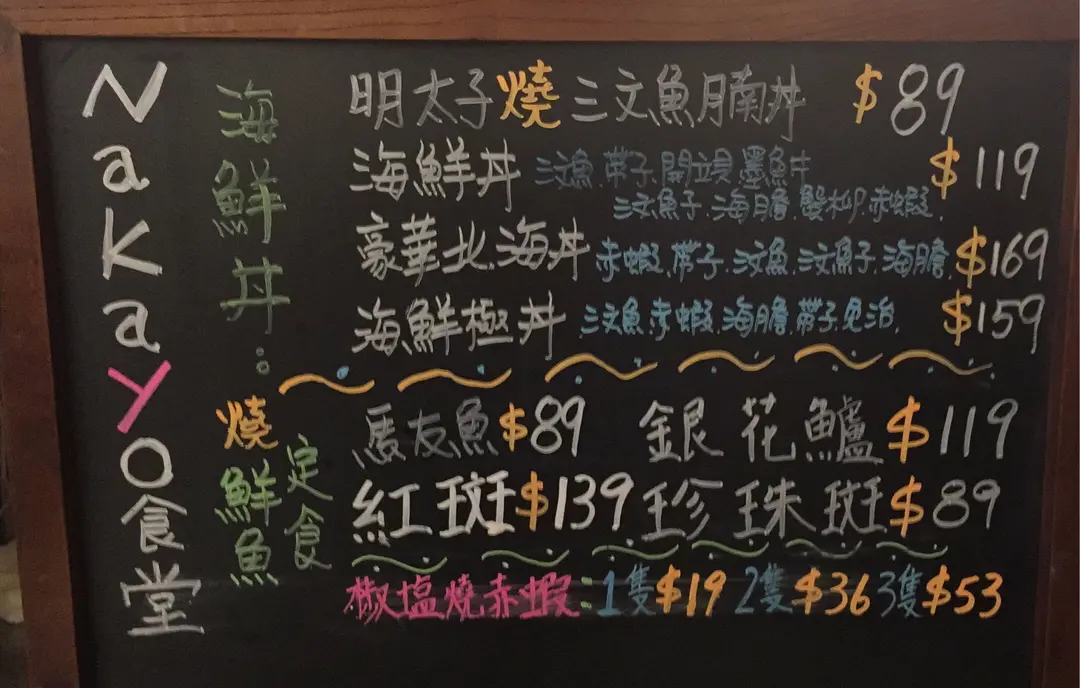 NaKaYo食堂
海鮮丼:
明太子燒三文魚腩丼 $89
海鮮丼 三文魚.帶子.開邊墨魚丼 $119
三文魚子.海膽.蟹柳.赤蝦.
豪華北海丼 赤蝦.帶子.三文魚.三文魚子.海膽. $169
海鮮極丼 三文魚赤蝦海膽帶子見治. $159
燒鮮魚定食
馬友魚$89 銀花鱸$119
紅斑$139 珍珠斑$89
椒塩燒赤蝦:1隻$19 2隻$36 3隻$53